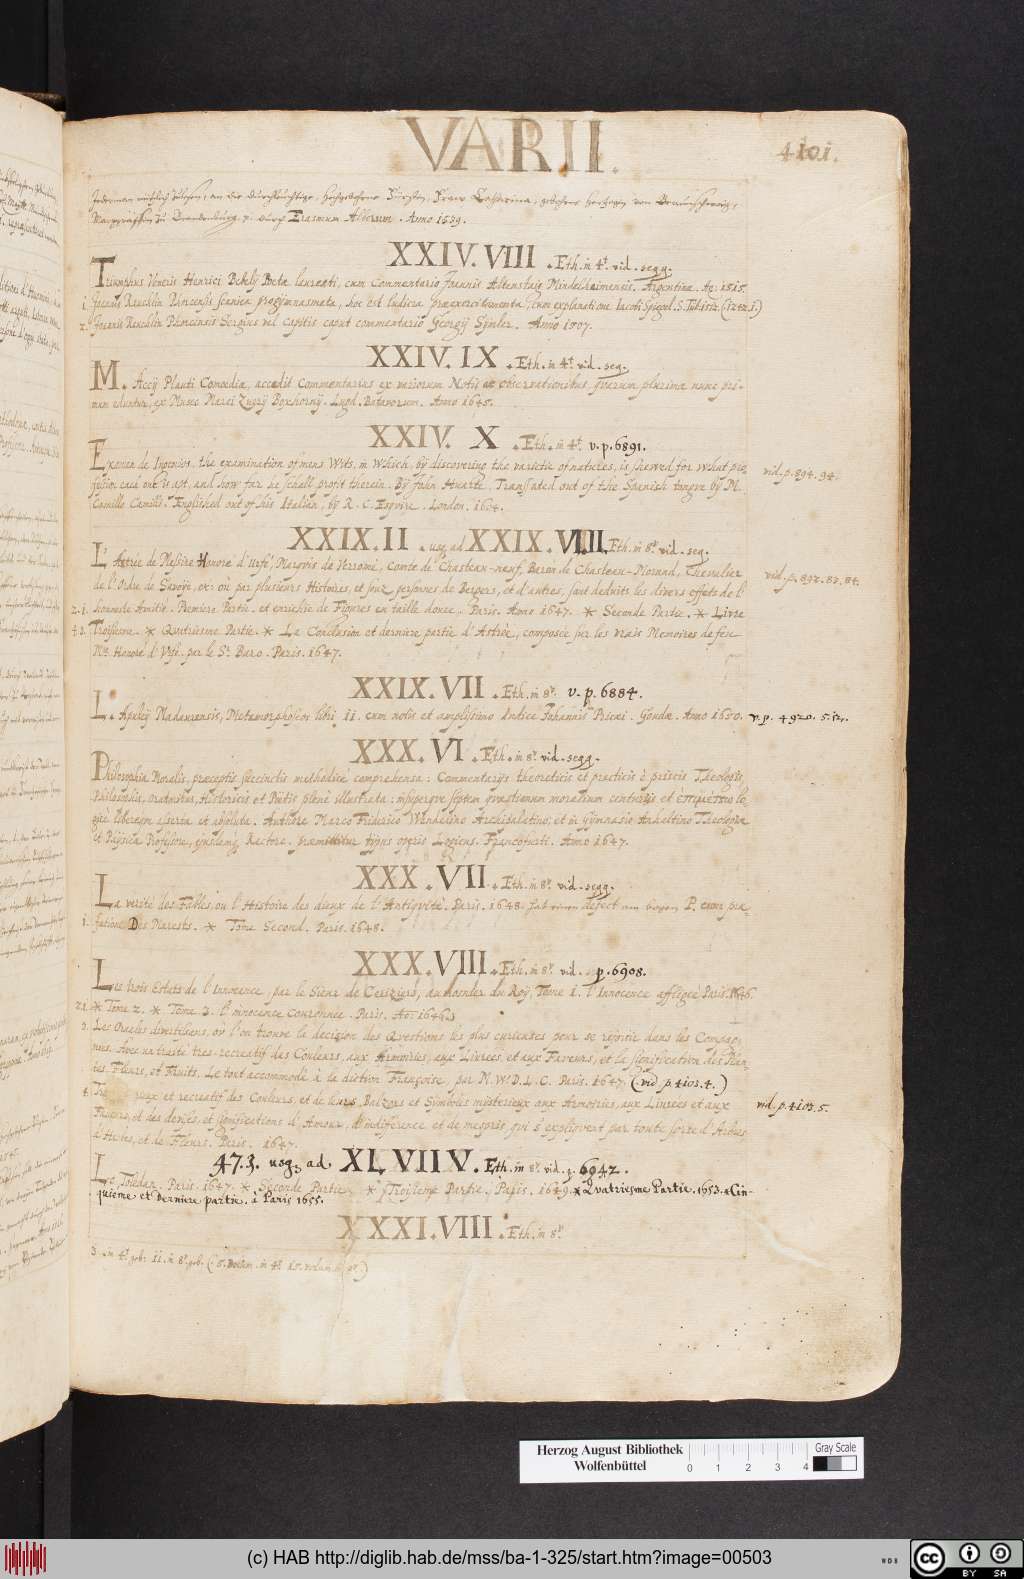 VARII.
4101.
Marggräffin zu Brandenburg. p. durch Erasmum Alberum. Anno 1539.
XXIV. VIII. Eth. in 4t. vid. seqq.
Triumphus Veneris Henrici Bebelij Poetæ laureati, cum Commentario Joannis Altenstaig Mindelhaimensis. Argentinæ. Ao. 1515.
1. Joannis Reuchlin Phorcensis scænica progymnasmata, hoc est ludicra præexercitamenta, cum explanatione Iacobi Spiegel. S. Tub. 1512. (124.2.1.)
2. Joannis Reuchlin Phorcensis Sergius vel capitis caput commentario Georgij Symler. Anno 1507.
XXIV. IX. Eth. in 4t. vid. seq.
M. Accij Plauti Comœdiæ, accedit Commentarius ex variorum Notis et observationibus, quarum plurimæ nunc pri-
mum eduntur, ex Museo Marci Zuerij Boxhornij. Lugd. Batavorum. Anno 1645.
XXIV. X. Eth. in 4t. v. p. 6891.
Examen de Ingenios. the examination of mens Wits, in Which, by discovering the varietie of natures, is shewed for what pro- vid. p. 894. 94.
fession each one is apt, and how far he schall profit therein. By John Huarte. Translated out of the Spanish tongve by M.
Camillo Camilli. Englished out of his Italian, by R. C. Esqvire. London. 1604.
XXIX. II. usq. ad XXIX. VIIII. Eth. in 8t. vid. seq.
L' Astrée de Messire Honoré d'Urfé, Marqvis de Verromé, Comte de Chasteau-neuf, Baron de Chasteau-Morand, Chevalier vid. p. 892. 83. 84.
de l'Ordre de Savoye, etc. où par plusieurs Histoires, et souz personnes de Bergers, et d'autres, sont deduits les divers effets de l'
2. 1. honneste Amitie. Premiere Partie. et enrichie de Figures en taille douce. Paris. Anno 1647. * Seconde Partie. * Livre
4. 3. Troisiesme. * Qvatriesme Partie. * La Conclusion et derniere partie d'Astrée, composée sur les vrais Memoires de feu
Mre. Honoré d'Vrfé. par le Sr. Baro. Paris. 1647.
XXIX. VII. Eth. in 8t. v. p. 6884.
L. Apuleij Madaurensis, Metamorphoseos libri 11. cum notis et amplissimo Indice Johannis Pricæi. Goudæ. Anno 1650. v. p. 4920. 5. 12.
XXX. VI. Eth. in 8t. vid. seqq.
Philosophia Moralis, præceptis succinctis methodicè comprehensa: Commentarijs theoreticis et practicis è priscis Theologis,
Philosophis, Oratoribus, Historicis et Poëtis plenè illustrata: insuperque septem quæstionum moralium centurijs et
gicè libereqve asserta et absoluta. Authore Marco Friderico Wendelino Archipalatino, et in gymnasio Anhaltino Theologiæ
et Physicæ Professore, ejusdemq. Rectore. præmittitur typus operis Logicus. Francofurti. Anno 1647.
XXX. VII. Eth. in 8t. vid. seqq.
La verité des Fables, ou l'Histoire des dieux de l'Antiqvité. Paris. 1648.
1. fatione Des Marests. * Tome Second. Paris. 1648.
XXX. VIII. Eth. in 8t. vid. p. 6908.
Les trois Estats de l'Innocence, par le Sieur de Ceriziers, aumosnier du Roy, Tome 1. l'Innocence affligée Paris. 1646.
2. 1. * Tome 2. * Tome 3. l'innocence Couronnée. Paris. Ao. 1646.
3. Les Oracles divertissans, où l'on trouve la decision des Qvestions les plus curieuses pour se rejouir dans les Compag-
nies. Avec un traité tres-recreatif des Couleurs, aux Armoiries, aux Livrées, et aux Faveurs, et la signification des Plan-
tes, Fleurs, et Fruits. Le tout accommodé à la diction Françoise par M. W. D. L. C. Paris. 1647. (vid. p. 4103. 4.)
4. et recreatif des Couleurs, et de leurs Balzons et Symboles mysterieux aux Armoiries, aux Livrees et aux vid. p. 4103. 5.
Faveurs, et des devises, et significations d'Amour, d'indifference et de mespris, qui s'expliqvent par toute sorte d'Arbres
d'Herbes, et de Fleurs. Paris. 1647.
47. 3. usq. ad. XL. VII V. Eth. in 8t. vid. p. 6942.
Le Toledan. Paris. 1647. * Seconde Partie * Troisieme Partie. Paris. 1649. * Qvatriesme Partie. 1653. * Cin-
quieme et derniere partie. à Paris 1655.
XXXI. VIII. Eth. in 8t.
Herzog August Bibliothek
Wolfenbüttel
Gray Scale
0 1 2 3 4
(c) HAB http://diglib.hab.de/mss/ba-1-325/start.htm?image=00503
WDB
cc BY SA